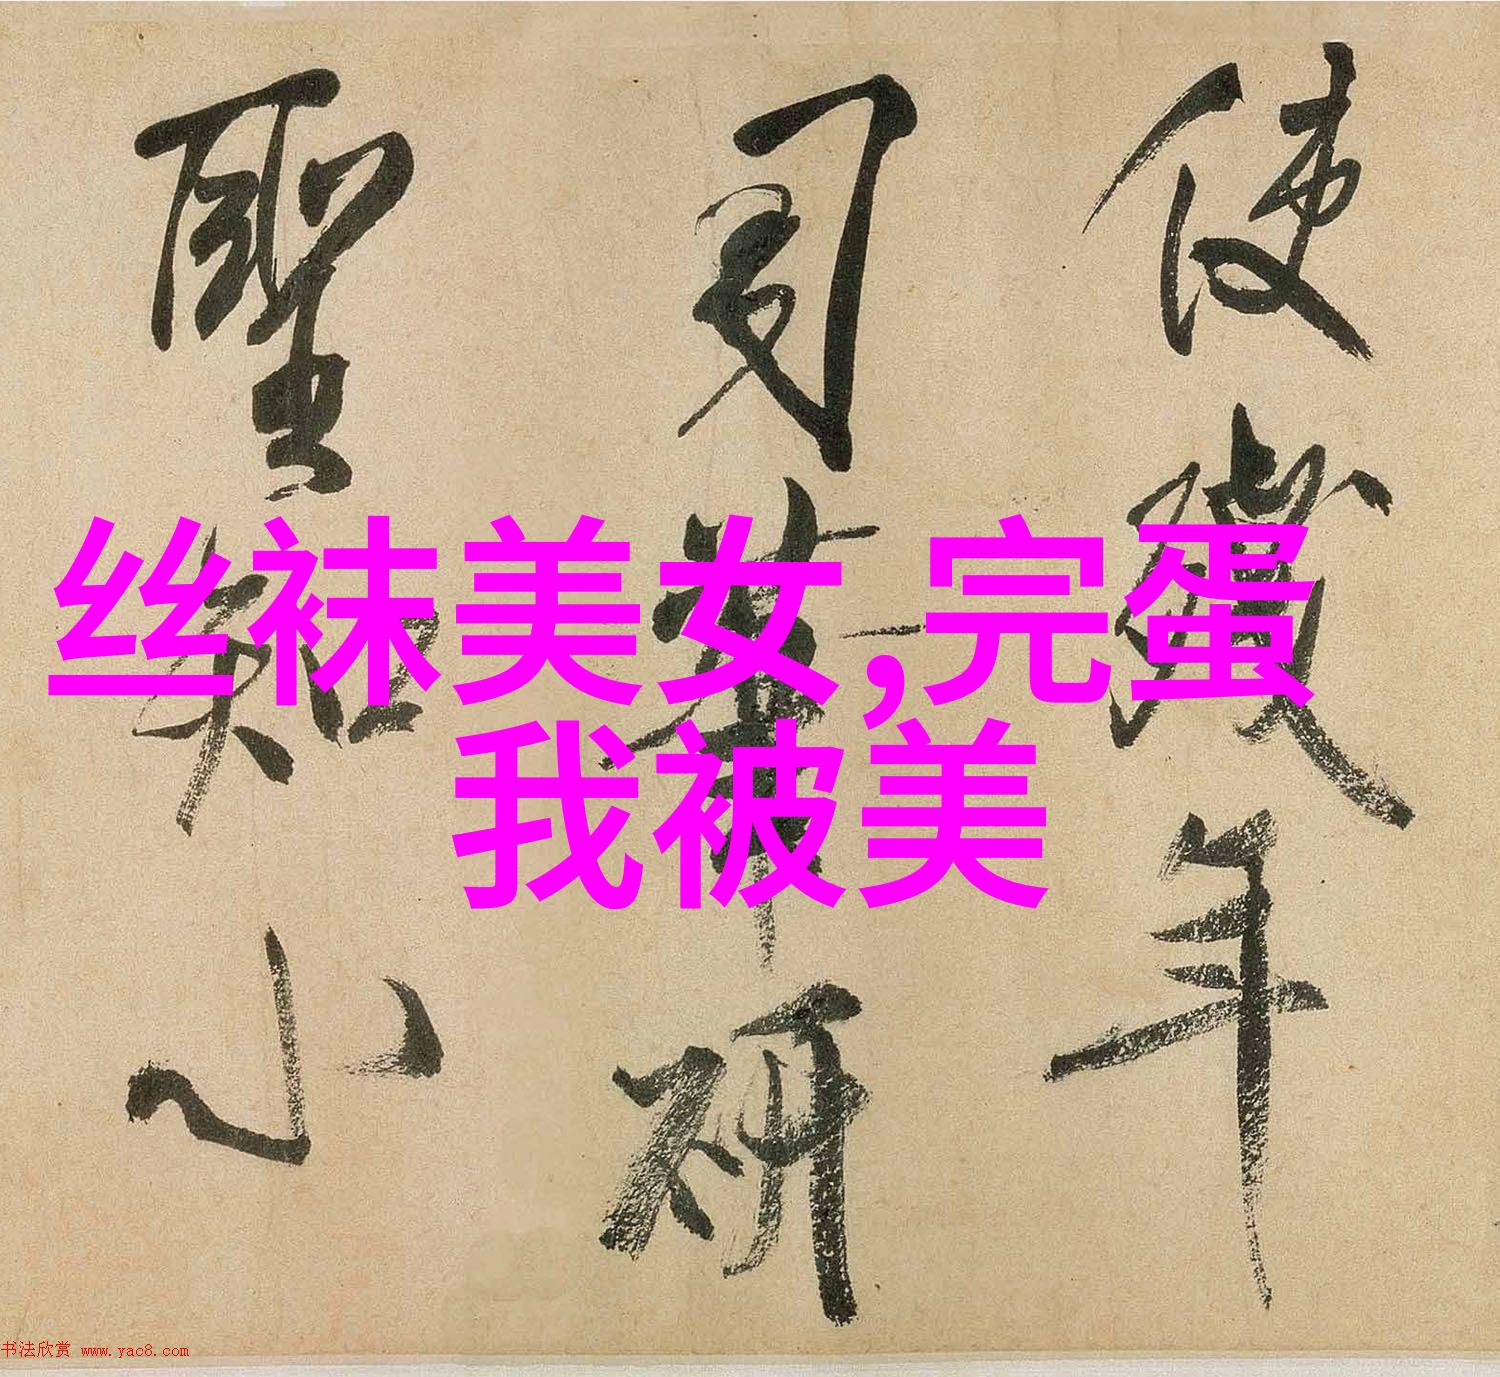 丝袜美女,完蛋
我被美
使殘年
司華研
聖知小
书法欣赏 www.yac8.com